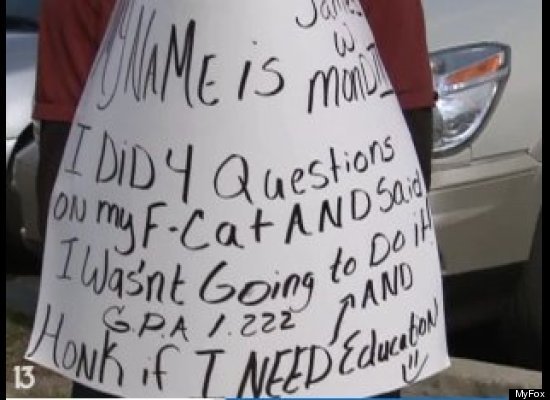 MY NAME is James
W.
I DiD 4 Questions
ON my F-Cat AND Said
I Wasn't Going to Do it!
G.P.A 1.222 ↗ AND
HONK if I NEED Education
13
MyFox